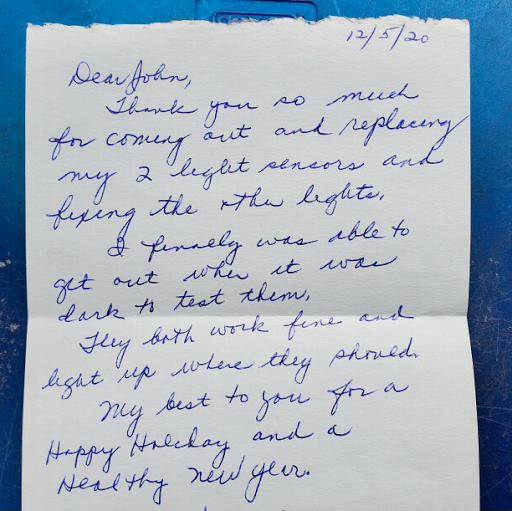 12/5/20
Dear John,
Thank you so much
for coming out and replacing
my 2 light sensors and
fixing the other lights.
I finally was able to
get out when it was
dark to test them.
They both work fine and
light up where they should.
My best to you for a
Happy Holiday and a
Healthy New Year.